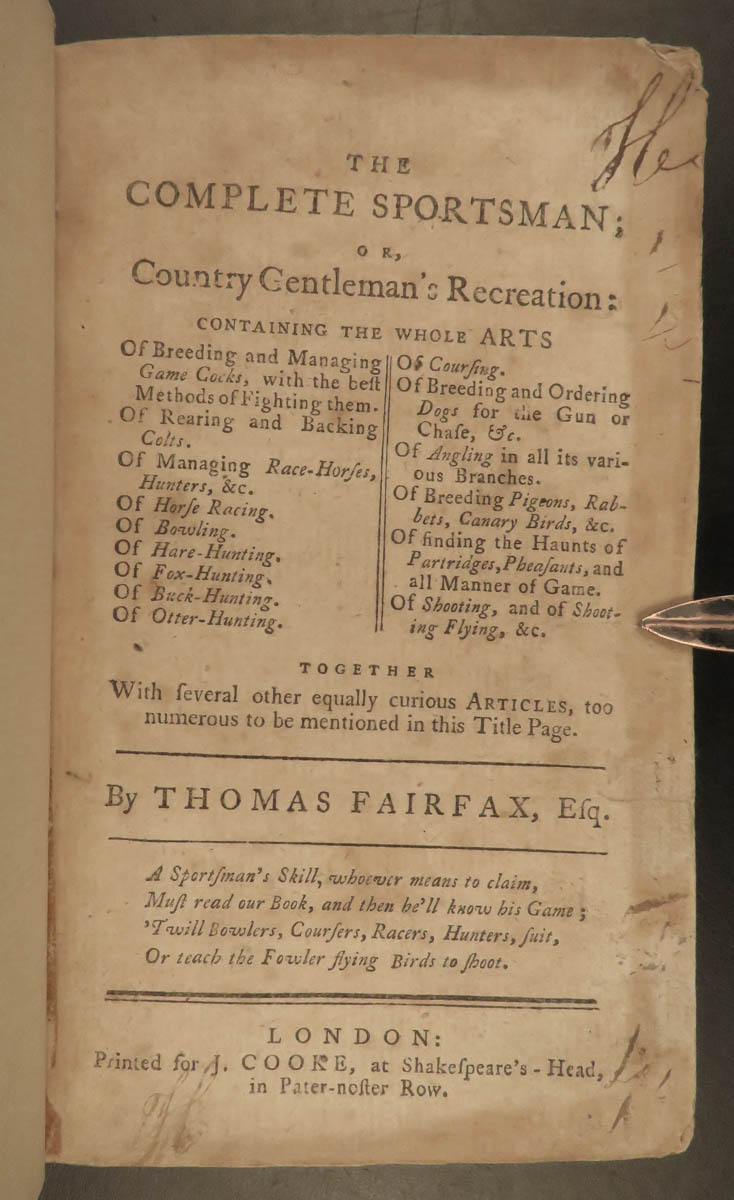 THE
COMPLETE SPORTSMAN;
OR,
Country Gentleman's Recreation:
CONTAINING THE WHOLE ARTS
Of Breeding and Managing
Game Cocks, with the beſt
Methods of Fighting them.
Of Rearing and Backing
Colts.
Of Managing Race-Horſes,
Hunters, &c.
Of Horſe Racing.
Of Bowling.
Of Hare-Hunting.
Of Fox-Hunting.
Of Buck-Hunting.
Of Otter-Hunting.
Of Courſing.
Of Breeding and Ordering
Dogs for the Gun or
Chaſe, &c.
Of Angling in all its vari-
ous Branches.
Of Breeding Pigeons, Rab-
bets, Canary Birds, &c.
Of finding the Haunts of
Partridges, Pheaſants, and
all Manner of Game.
Of Shooting, and of Shoot-
ing Flying, &c.
TOGETHER
With ſeveral other equally curious ARTICLES, too
numerous to be mentioned in this Title Page.
By THOMAS FAIRFAX, Eſq.
A Sportſman's Skill, whoever means to claim,
Muſt read our Book, and then he'll know his Game;
'Twill Bowlers, Courſers, Racers, Hunters, ſuit,
Or teach the Fowler flying Birds to ſhoot.
LONDON:
Printed for J. COOKE, at Shakeſpeare's-Head,
in Pater-noſter Row.